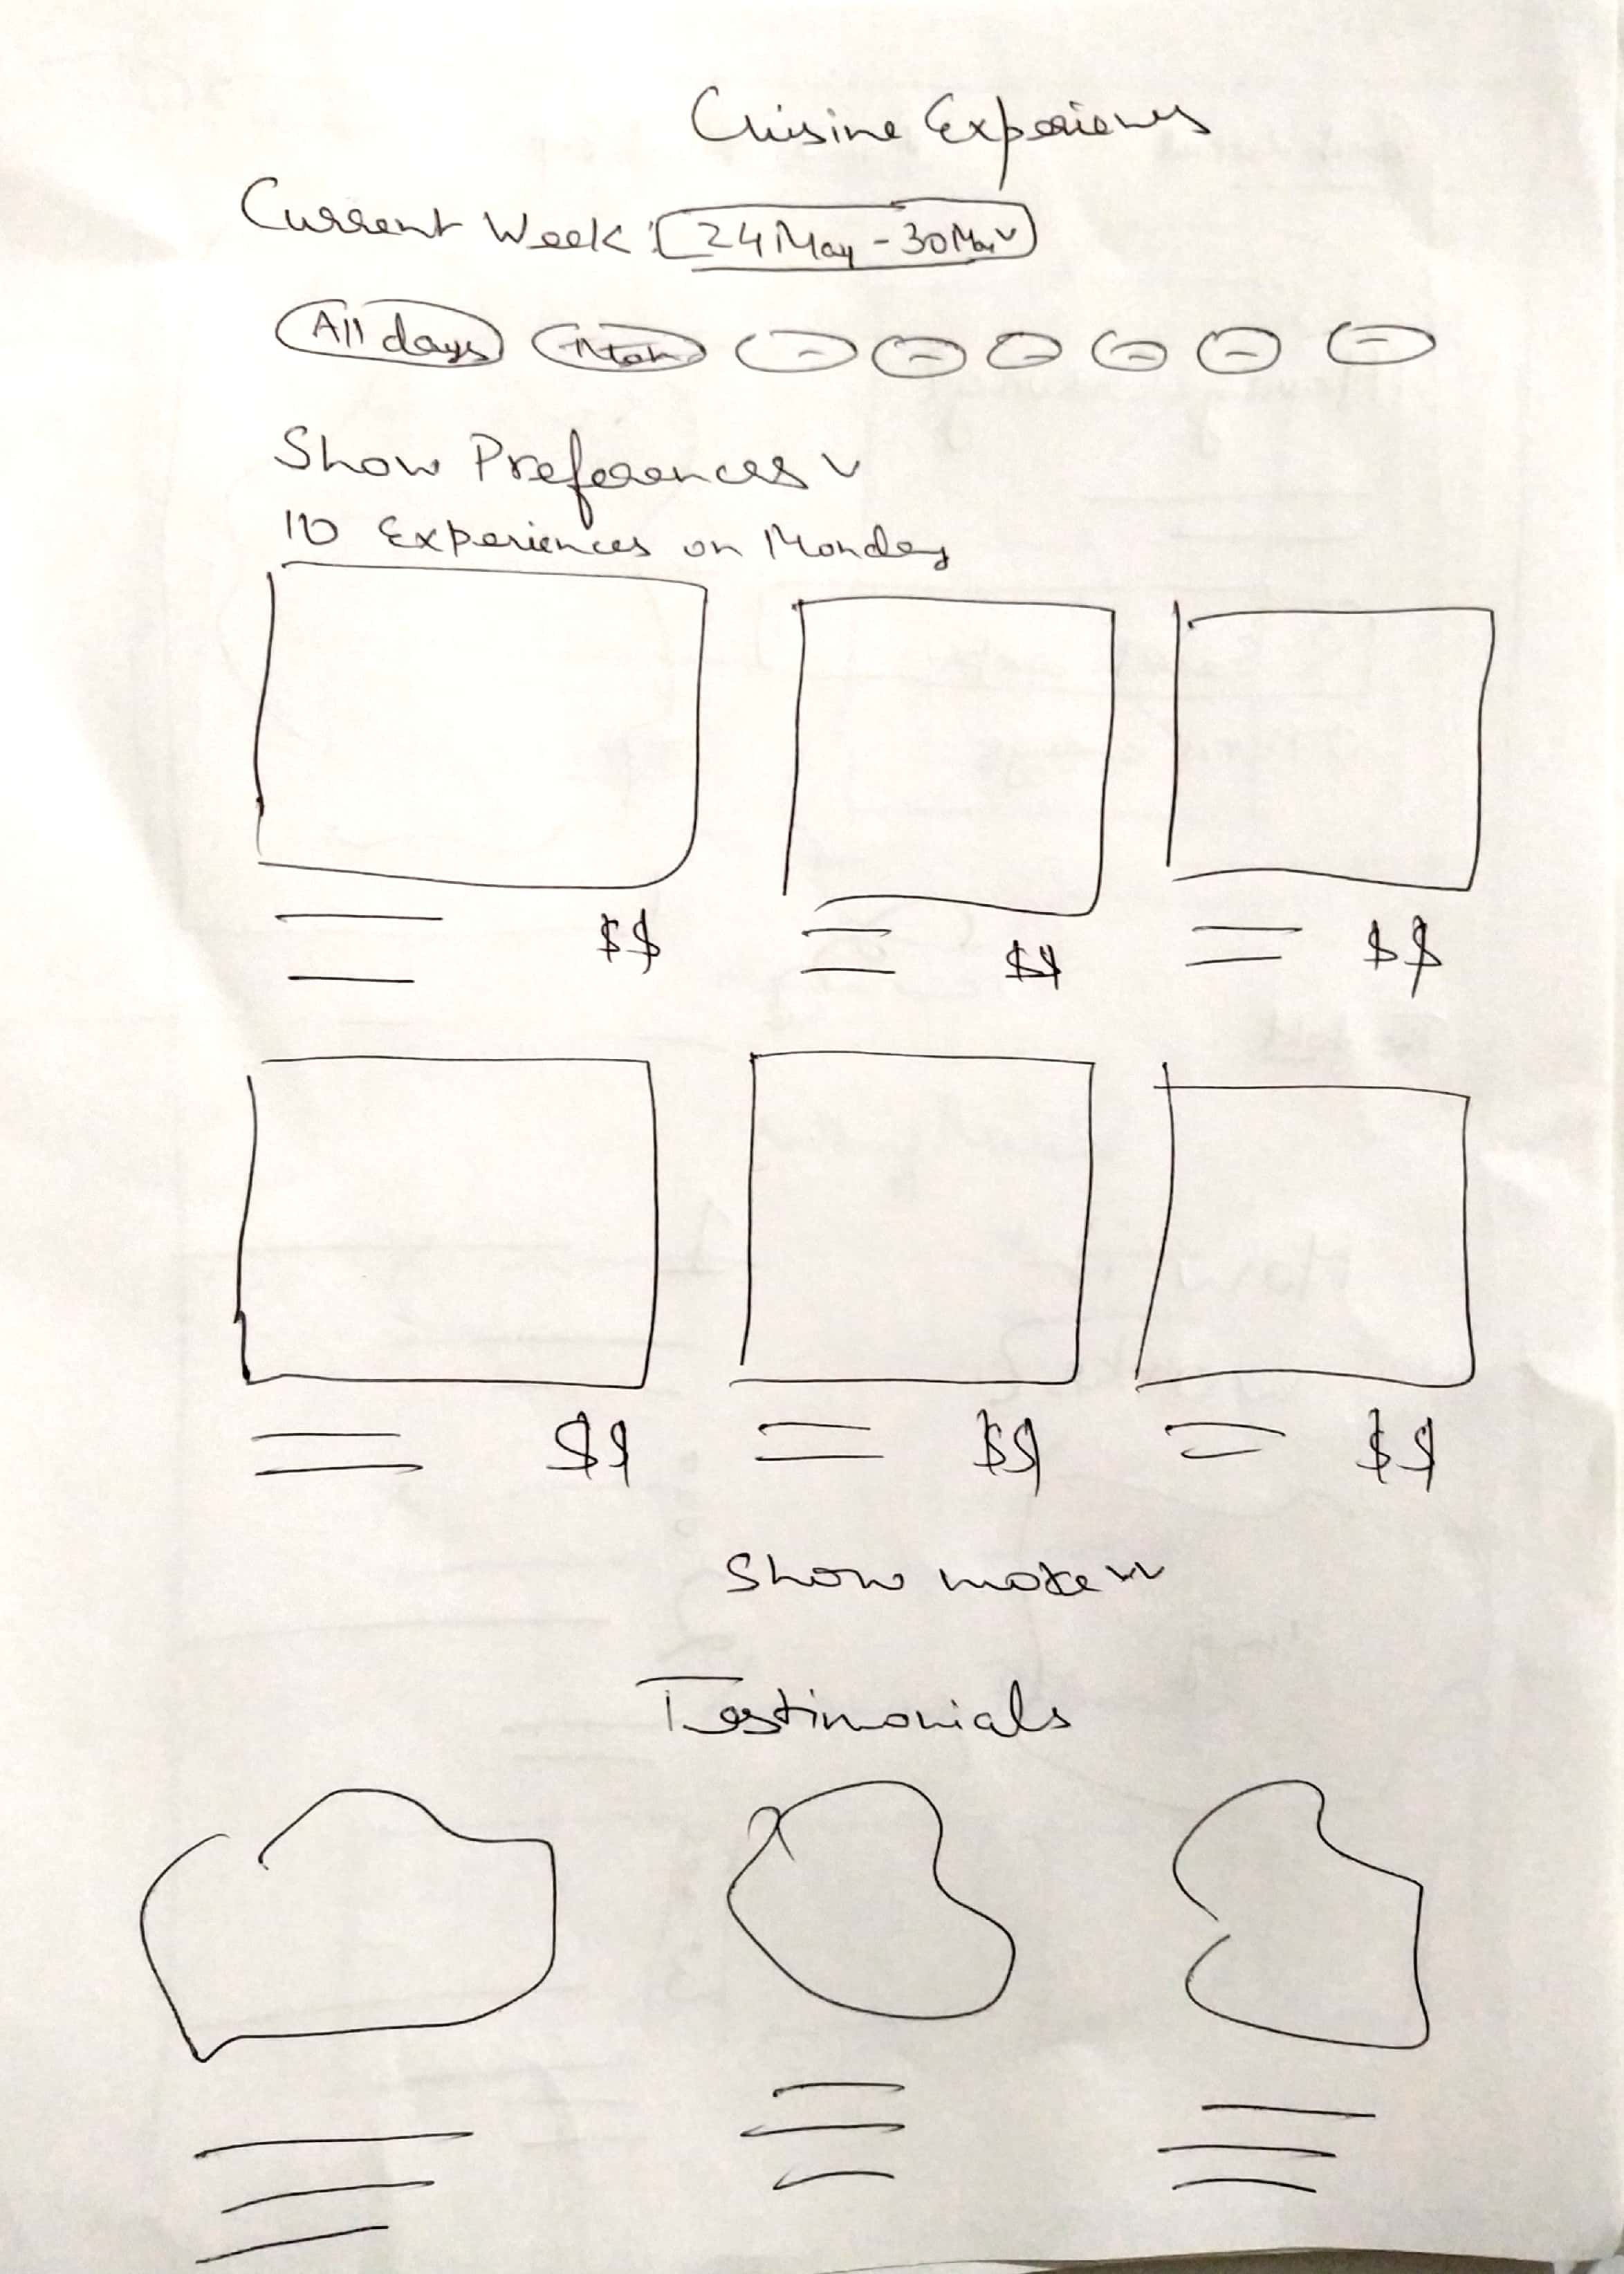 Cuisine Experiences
Current Week: 24 May - 30 May
All days Mon
Show Preferences
110 Experiences on Monday
$$ $$ $$
$$ $$ $$
Show more
Testimonials